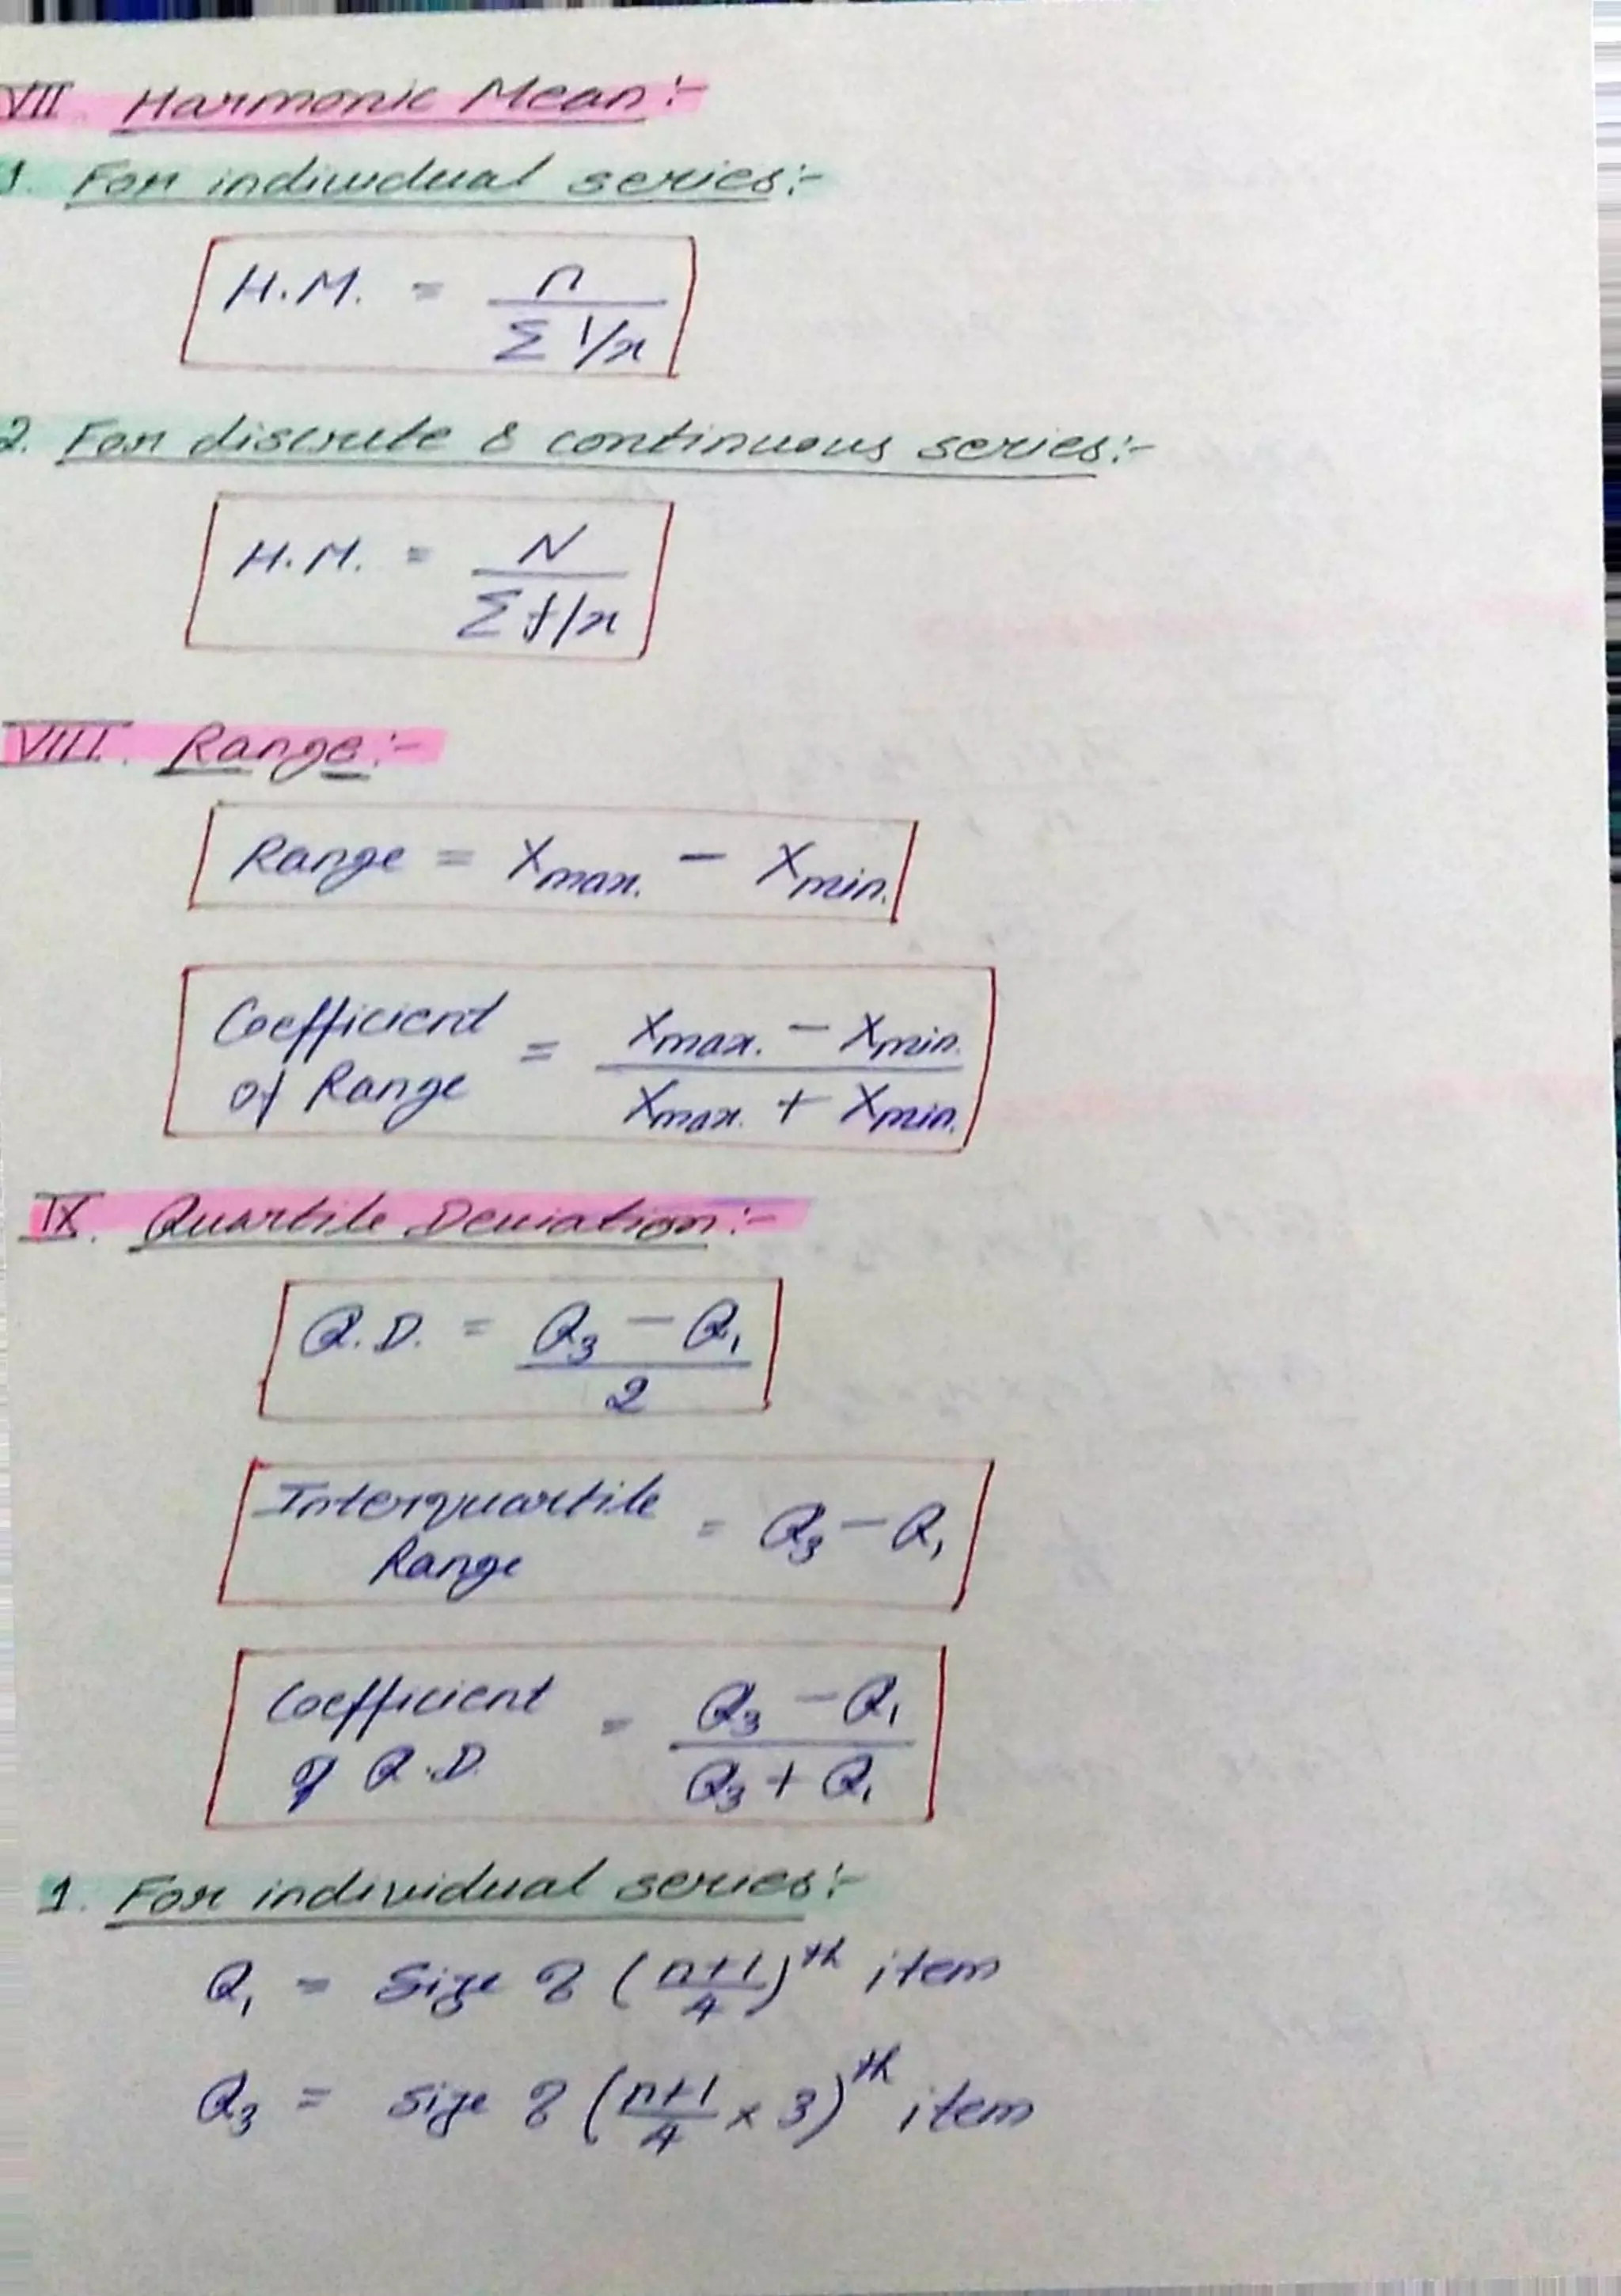 VII. Harmonic Mean:-
1. For individual series:-
H.M. = n / Σ 1/x
2. For discrete & continuous series:-
H.M. = N / Σ f/x
VIII. Range:-
Range = Xmax. - Xmin.
Coefficient of Range = (Xmax. - Xmin.) / (Xmax. + Xmin.)
IX. Quartile Deviation:-
Q.D. = (Q₃ - Q₁) / 2
Interquartile Range = Q₃ - Q₁
Coefficient of Q.D. = (Q₃ - Q₁) / (Q₃ + Q₁)
1. For individual series:-
Q₁ = Size of (n+1/4)th item
Q₃ = Size of (n+1/4 × 3)th item